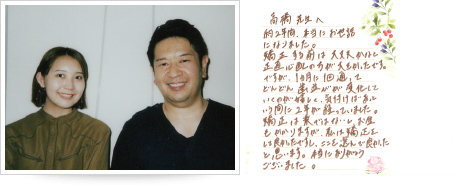 高橋先生へ
約2年間、本当にお世話
になりました。
矯正する前は大丈夫かなと
正直心配の方が大きかったです。
ですが、1ヵ月に1回通って
どんどん歯並びが変化して
いくのが嬉しく、気付けばあっと
いう間に2年が経っていました。
矯正は楽ではないし、お金
もかかりますが、私は矯正を
して良かったですし、ここを選んで良かった
と思います。本当にありがとう
ございました。